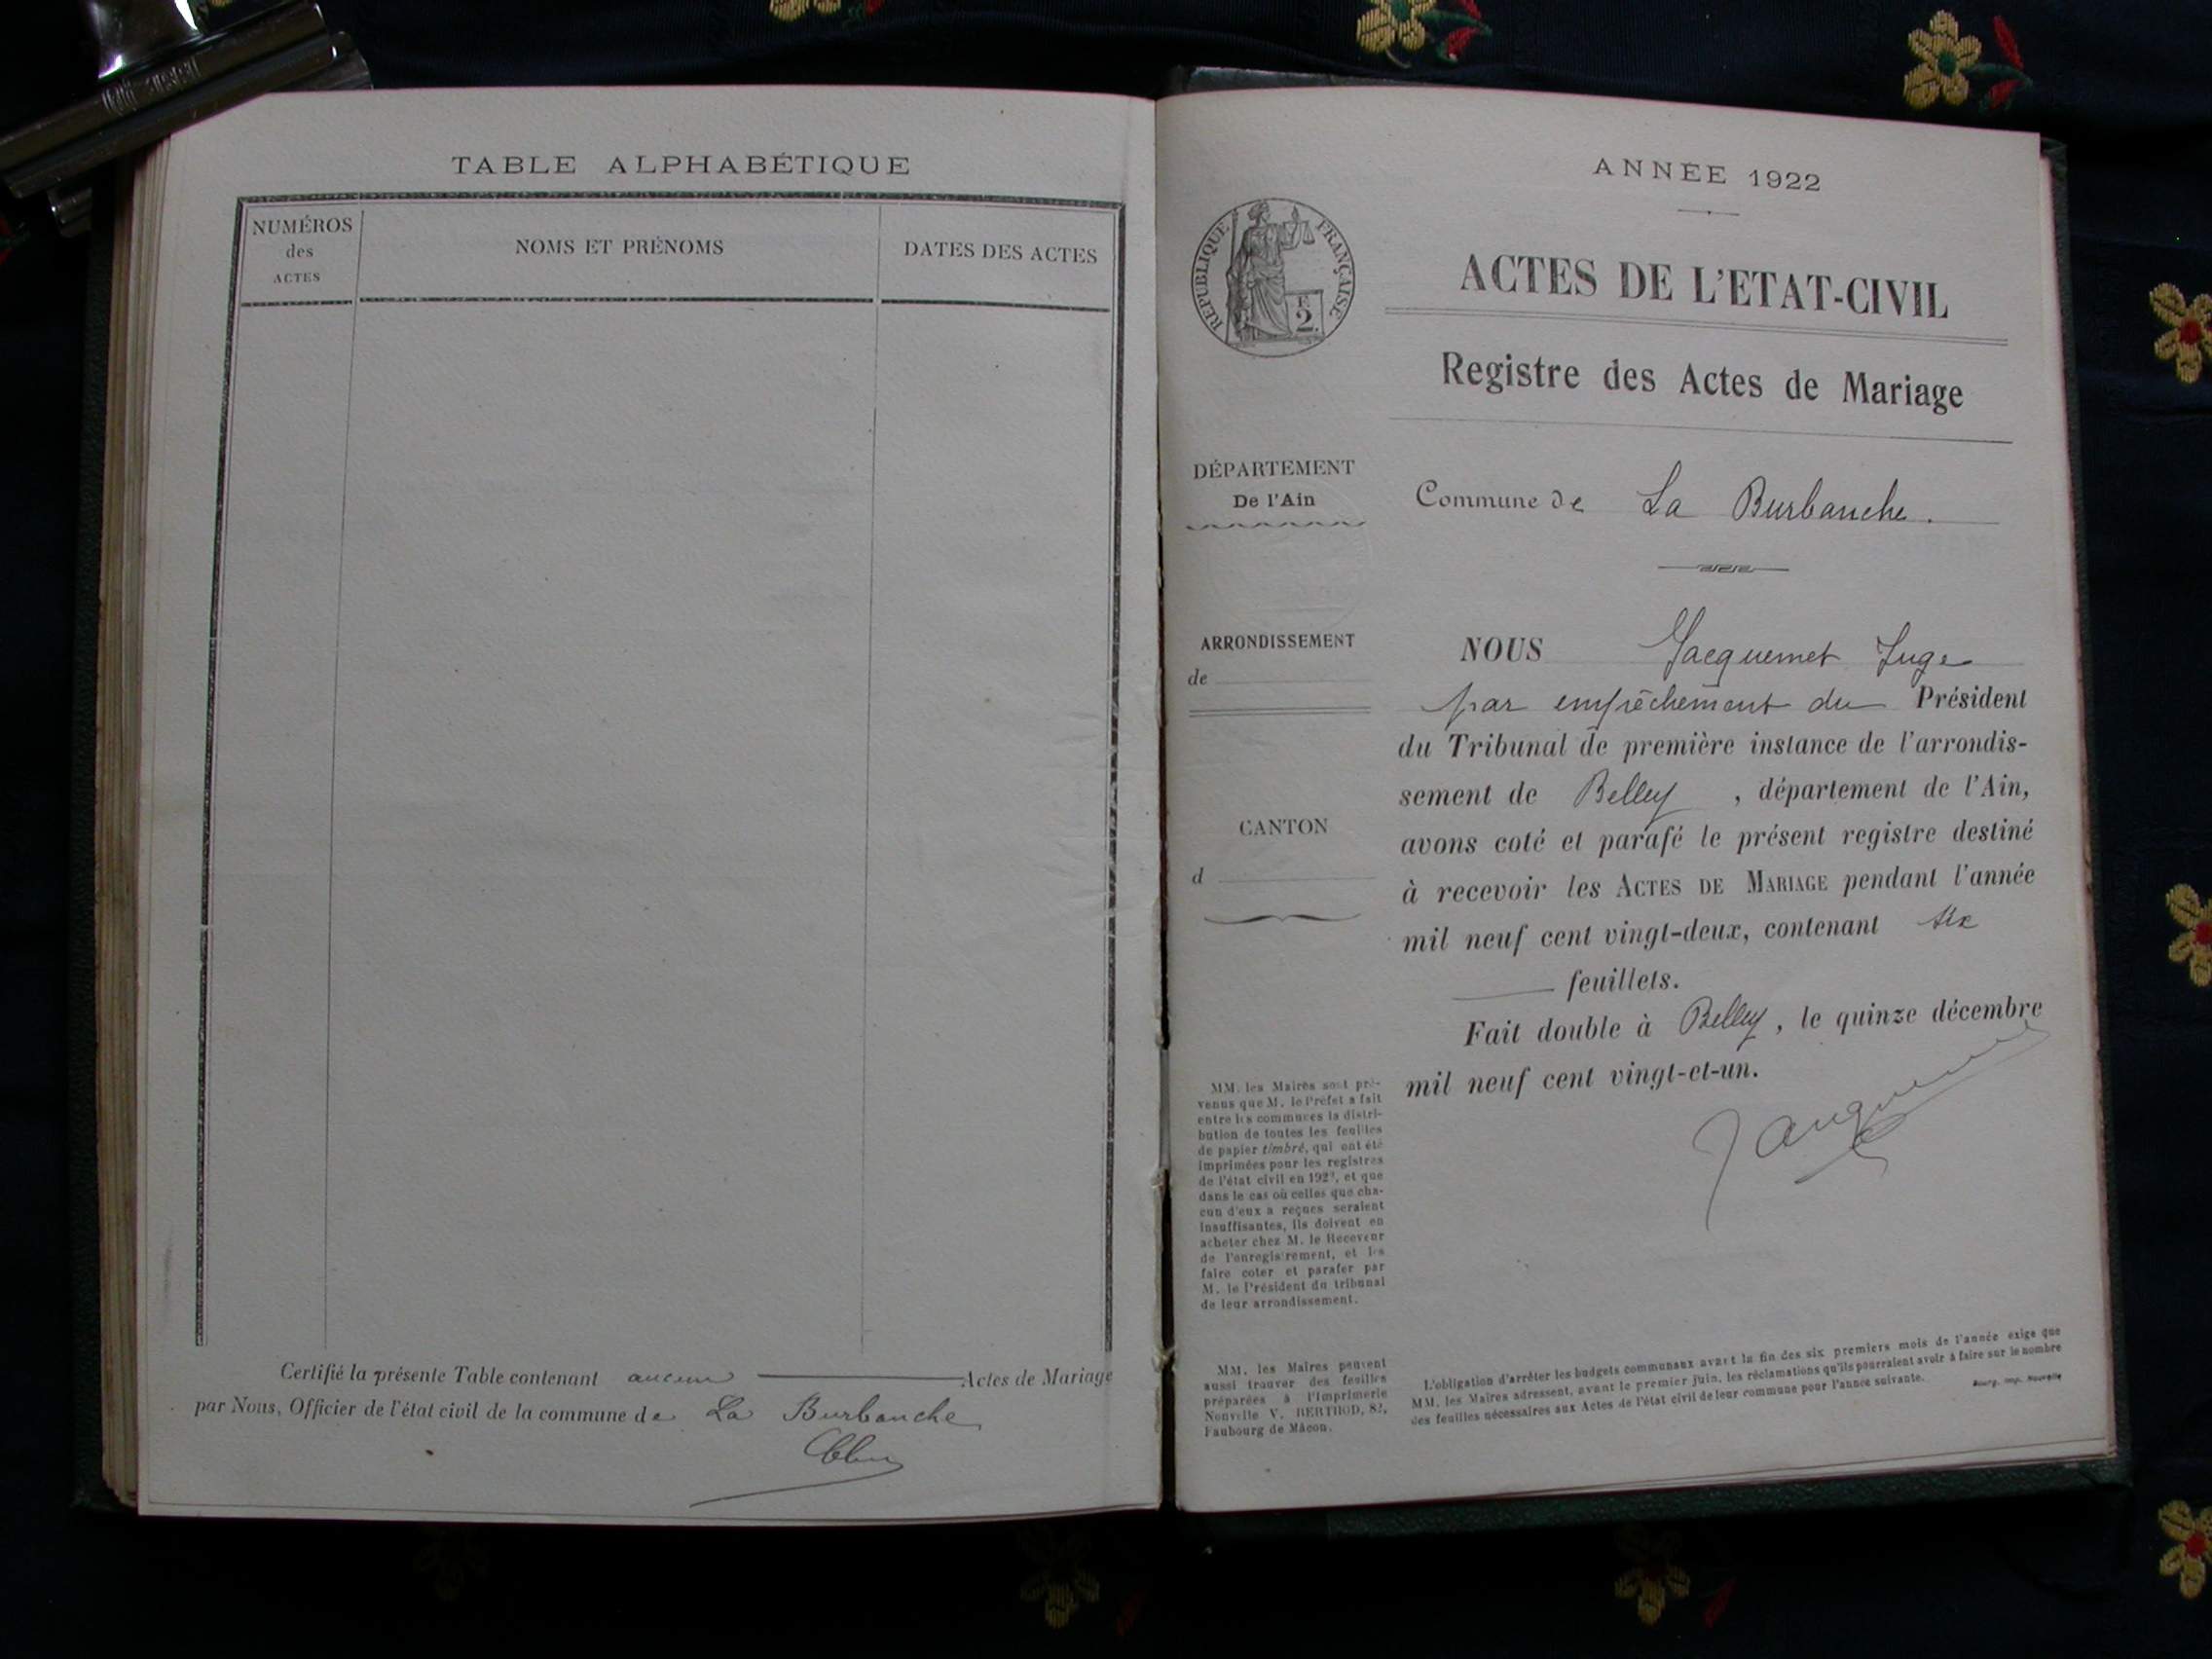 TABLE ALPHABÉTIQUE
NUMÉROS
des
ACTES
NOMS ET PRÉNOMS
DATES DES ACTES
Certifié la présente Table contenant aucun Actes de Mariage
par Nous, Officier de l'état civil de la commune de La Burbanche
ANNÉE 1922
RÉPUBLIQUE FRANÇAISE
2 F.
ACTES DE L'ETAT-CIVIL
Registre des Actes de Mariage
DÉPARTEMENT
De l'Ain
Commune de La Burbanche.
ARRONDISSEMENT
de
CANTON
d
NOUS Jacquemet Juge
par empêchement du Président
du Tribunal de première instance de l'arrondis-
sement de Belley, département de l'Ain,
avons coté et parafé le présent registre destiné
à recevoir les ACTES DE MARIAGE pendant l'année
mil neuf cent vingt-deux, contenant six
feuillets.
Fait double à Belley, le quinze décembre
mil neuf cent vingt-et-un.
MM. les Maires sont pré-
venus que M. le Préfet a fait
entre les communes la distri-
bution de toutes les feuilles
de papier timbré, qui ont été
imprimées pour les registres
de l'état civil en 1922, et que
dans le cas où celles que cha-
cun d'eux a reçues seraient
insuffisantes, ils doivent en
acheter chez M. le Receveur
de l'enregistrement, et les
faire coter et parafer par
M. le Président du tribunal
de leur arrondissement.
MM. les Maires peuvent
aussi trouver des feuilles
préparées à l'Imprimerie
Nouvelle V. BERTHOD, 82,
Faubourg de Mâcon.
L'obligation d'arrêter les budgets communaux avant la fin des six premiers mois de l'année exige que
MM. les Maires adressent, avant le premier juin, les réclamations qu'ils pourraient avoir à faire sur le nombre
des feuilles nécessaires aux Actes de l'état civil de leur commune pour l'année suivante.
Bourg, imp. Nouvelle